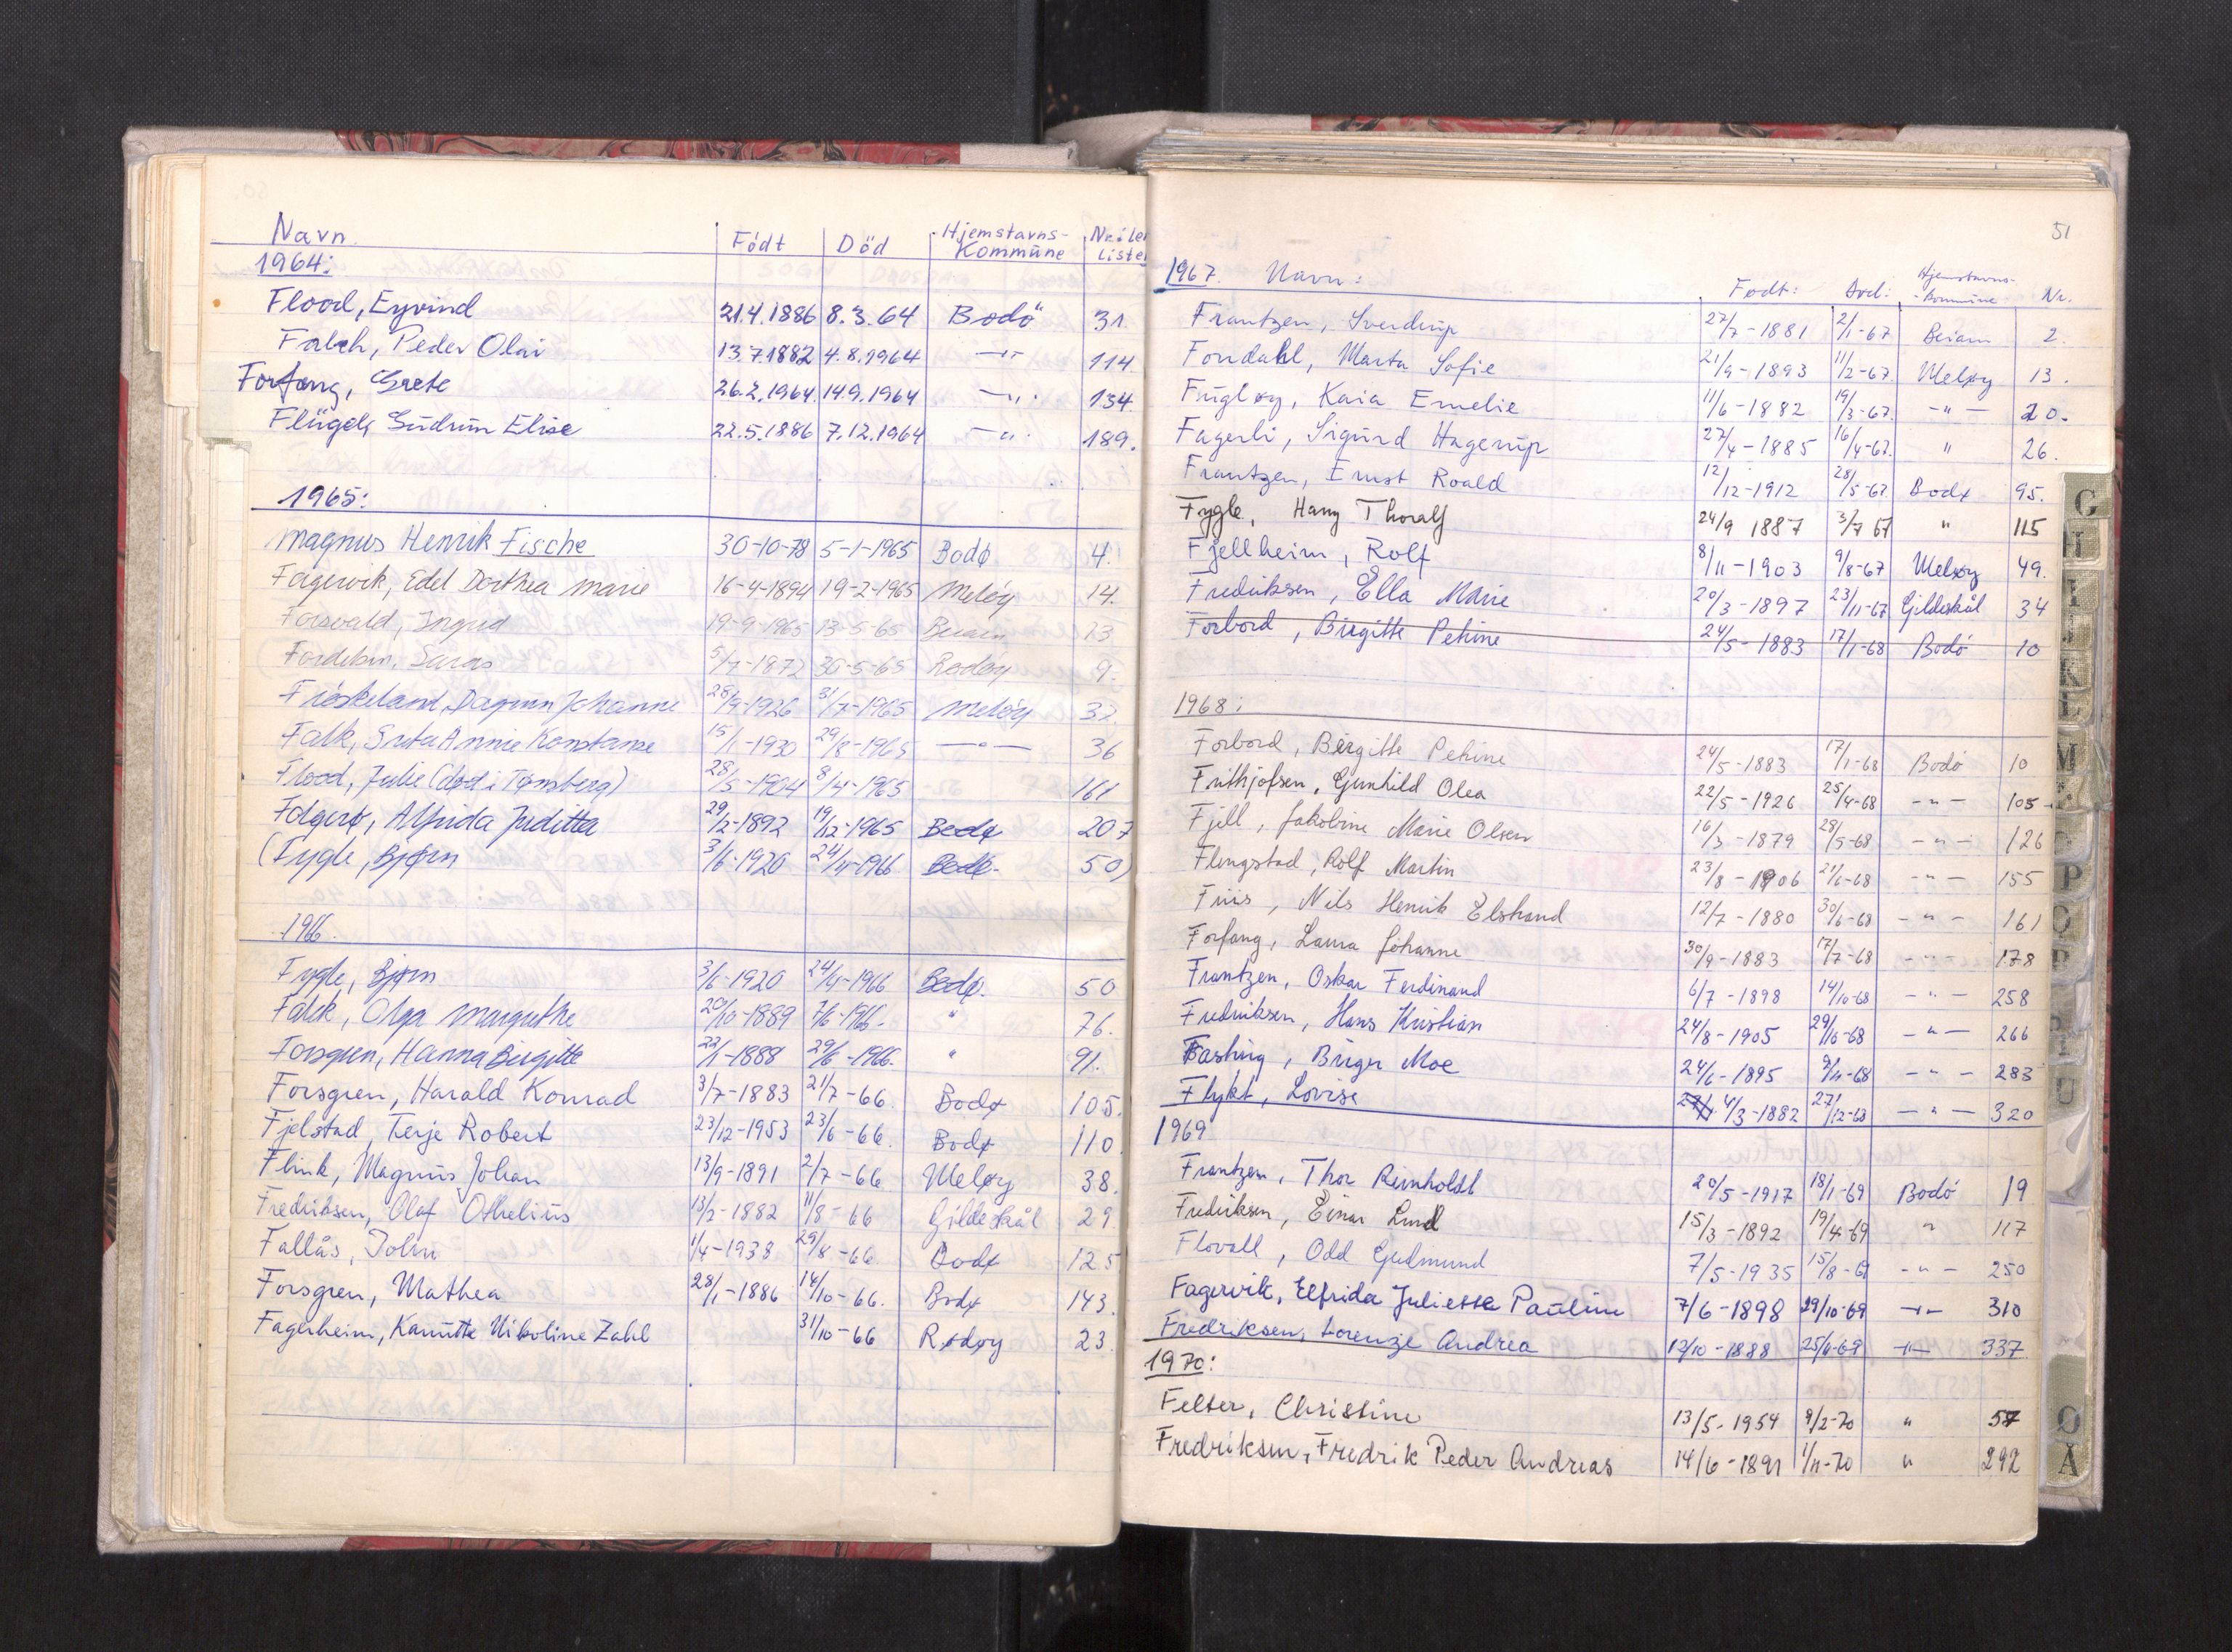 Navn Født Död Hjemstavns-Kommune Nr. i
1964:
Flood, Eyvind 21.4.1886 8.3.64 Bodö 31.
Falch, Peder Olai 13.7.1882 4.8.1964 —"— 114
Forfang, Grete 26.2.1964. 14.9.1964 —"— 134
Flügel, Gudrun Elise 22.5.1886 7.12.1964 —"— 189.
1965:
Magnus Henrik Fische 30-10-78 5-1-1965 Bodø 4.
Fagervik, Edel Dorthea Marie 16-4-1894 19-2-1965 Meløy 14.
Forsvald, Ingrid 19-9-1965 13-5-65 Beiarn 13
5/7-1872 30-5-65 Rødøy 9.
Frøskeland, Dagrun Johanne 28/9-1926 31/7-1965 Meløy 32
Falk, Annie Konstanse 15/1-1930 29/8-1965 —"— 36
Flood, Julie (død i Tønsberg) 28/5-1904 8/4-1965 161
Folgerø, Alfrida Juditta 29/2-1892 19/12-1965 Bodø 207
(Fygle, Bjørn 3/6-1920 24/4-1966 Bodø. 50)
1966.
Fygle, Bjørn 3/6-1920 24/4-1966 Bodø. 50
Falck, Olga Margrethe 20/10-1889 7/6-1966. " 76.
Forsgren, Hanna Birgitte 22/1-1888 29/6-1966. " 91.
Forsgren, Harald Konrad 3/7-1883 21/7-66. Bodø 105.
Fjelstad, Terje Robert 23/12-1953 23/6-66. Bodø 110
Flink, Magnus Johan 13/9-1891 2/7-66 Meløy 38.
Fredriksen, Olaf Othelius 13/2-1882 11/8-66 Gildeskål 29
Fallås, John 1/4-1938 29/8-66 Bodø 125
Forsgren, Mathea 28/1-1886 14/10-66. Bodø 143.
Fagerheim, Kanutte Nikoline Zahl 31/10-66 Rødøy 23.
51
1967. Navn: Født: Død: Hjemstavns-kommune Nr.
Frantzen, Sverdrup 27/7-1881 2/1-67 Beiarn 2.
Fondahl, Marta Sofie 21/9-1893 11/2-67. Meløy 13.
Fugløy, Kaia Emelie 11/6-1882 19/3-67. —"— 20.
Fagerli, Sigurd Hagerup 27/4-1885 16/4-67. " 26.
Frantzen, Ernst Roald 12/12-1912 28/5-67. Bodø 95.
Fygle, Harry Thoralf 24/9 1887 3/7 67 " 115
Fjellheim, Rolf 8/11-1903 9/8-67 Meløy 49.
Fredriksen, Ella Marie 20/3-1897 23/11-67 Gildeskål 34
Forbord, Birgitte Petrine 24/5-1883 17/1-68 Bodö 10
1968:
Forbord, Birgitte Petrine 24/5-1883 17/1-68 Bodö 10
Frithjofsen, Gunhild Olea 22/5-1926 25/4-68 —"— 105.
Fjell, Jakobine Marie Olsen 16/3-1879 28/5-68 —"— 126
Flengstad, Rolf Martin 23/8-1906 21/6-68 —"— 155
Friis, Nils Henrik Elstrand 12/7-1880 30/6-68 —"— 161
Forfang, Laura Johanne 30/9-1883 17/7-68 —"— 178
Frantzen, Oskar Ferdinand 6/7-1898 14/10-68 —"— 258
Fredriksen, Hans Kristian 24/8-1905 29/10-68 —"— 266
Fasting, Birger Moe 24/6-1895 9/11-68 —"— 283
Flykt, Lovise 4/3-1882 27/12-68 —"— 320
1969
Frantzen, Thor Reinholdt 20/5-1917 18/1-69 Bodö 19
Fredriksen, Einar Lund 15/3-1892 19/4-69 " 117
Flovall, Odd Gudmund 7/5-1935 15/8-69 —"— 250
Fagervik, Elfrida Juliette Pauline 7/6-1898 29/10-69 —"— 310
Fredriksen, Lorenze Andrea —"— 337
1970:
Felter, Christine 13/5-1954 9/2-70 " 57
Fredriksen, Fredrik Peder Andreas 14/6-1891 1/11-70 " 292
G
H
I
J
K
L
M
P
U
Ø
Å